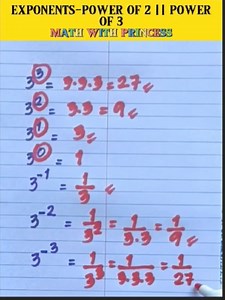 EXPONENTS-POWER OF 2 || POWER
OF 3
MATH WITH PRINCESS
3³ = 3.3.3 = 27
3² = 3.3 = 9
3¹ = 3
3⁰ = 1
3⁻¹ = 1/3
3⁻² = 1/3² = 1/3.3 = 1/9
3⁻³ = 1/3³ = 1/3.3.3 = 1/27